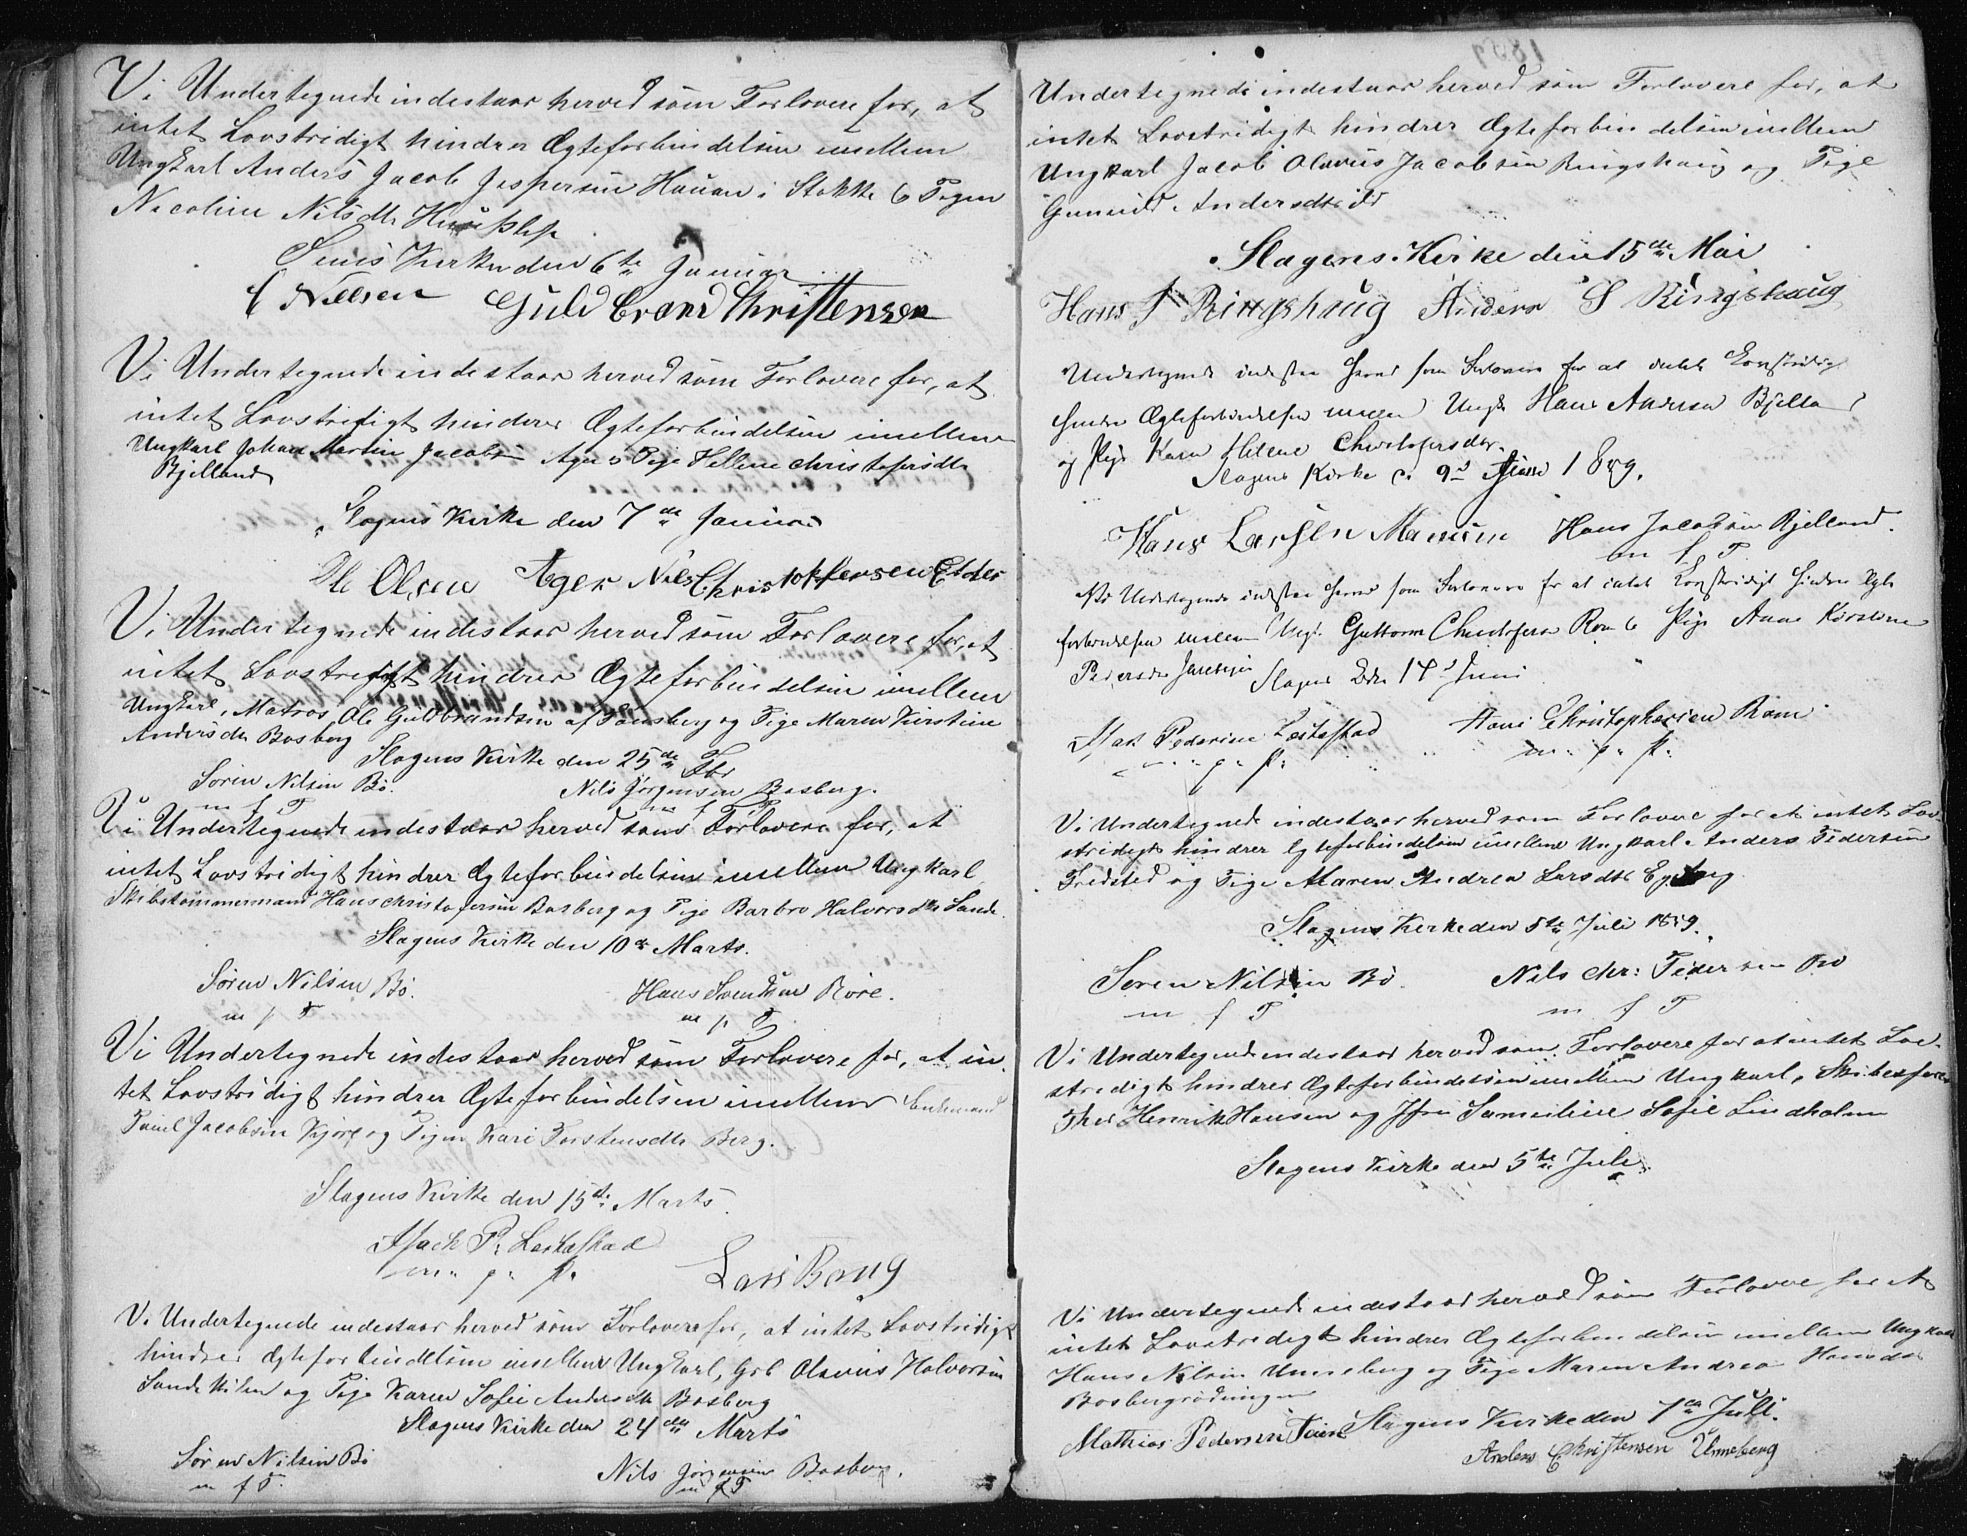 Vi Undertegnede indestaar herved som Forlovere for, at
intet Lovstridigt hindrer Ægteforbindelsen imellem
Ungkarl Anders Jacob Jespersen Hauan i Stokke & Pigen
Nicoline Nilsdtr
Sems Kirke den 6te Januar
Nilsen Guldbrand Christensen
Vi Undertegnede indestaar herved som Forlovere for, at
intet Lovstridigt hinderer Ægteforbindelsen imellem
Ungkarl Johan Martin Jacobs Ager & Pige Helene Christofersdtr
Bjelland
Slagens Kirke den 7de Januar
Ole Olsen Ager Nils Christoffersen Elder
Vi Undertegnede indestaar herved som Forlovere for, at
intet Lovstridigt hindrer Ægteforbindelsen imellem
Ungkarl, Matros Ole Guldbrandsen af Tønsberg og Pige Maren Kirstine
Andersdtr Basberg
Slagens Kirke den 25de Fbr
Søren Nilsen Bø. Nils Jørgensen Basberg.
m f P m f P
Vi Undertegnede indestaar herved som Forlovere for, at
intet Lovstridigt hindrer Ægteforbindelsen imellem Ungkarl
Skibstømmermand Hans Christofersen Basberg og Pige Barbro Halvorsdtr Sande
Slagens Kirke den 10de Marts.
Søren Nilsen Bø. Hans Svendsen Røre.
m f P m f P
Vi Undertegnede indestaar herved som Forlovere for, at in-
tet Lovstridigt hindrer Ægteforbindelsen imellem Enkemand
Paul Jacobsen Kjøre og Pigen Kari Torstensdtr Berg.
Slagens Kirke den 15de Marts
Isach P. Lertastad
m. p. p. Lars Baug
Vi Undertegnede indestaar herved som Forlovere for, at intet Lovstridigt
hindrer Ægteforbindelsen imellem Ungkarl, Grb Olavus Halvorsen
og Pige Karen Sofie Andersdtr Basberg
Slagens Kirke den 24de Marts
Søren Nilsen Bø Nils Jørgensen Basberg.
m f P. m f P
Undertegnede indestaar herved som Forlovere for, at
intet Lovstridigt hindrer Ægteforbindelsen imellem
Ungkarl Jacob Olavus Jacobsen Ringshaug og Pige
Gunnild Andersdtr
Slagens Kirke den 15de Mai
Hans J Ringshaug Anders S Ringshaug
Undertegnede indestaa herved som Forlovere for at intet Lovstridigt
hindre Ægteforbindelsen mellem Ungk Hans Andersen Bjelland
og Pige Karen Helene Christofersdtr.
Slagens Kirke d. 9d Juni 1859.
Hans Larssen Manum Hans Jacobsen Bjelland.
m f P.
Vi Undertegnede indestaa herved som Forlovere for at intet Lovstridigt hindre Ægte-
forbindelsen mellem Ungk. Guttorm Christofersen Rom & Pige Anne Kirstine
Pedersdtr
Slagens Kirke 17d Juni
Isak Pedersen Lertastad Hans Christophersen Rom
m. p. p. m. p. p.
Vi Undertegnede indestaar herved som Forlovere for at intet Lov-
stridigt hindrer Ægteforbindelsen imellem Ungkarl Anders Pedersen
Fredsted og Pige Maren Andrea Larsdtr
Slagens Kirke den 5te Juli 1859.
Søren Nilsen Bø. Nils Chr: Pedersen Bø
m f P m f P
Vi Undertegnede indestaar herved som Forlovere for at intet Lov-
stridigt hindrer Ægteforbindelsen imellem Ungkarl, Skibsfører
Thor Henrik Hansen og Jfr Samueline Sofie Lindholm
Slagens Kirke den 5te Juli.
Vi Undertegnede indestaar herved som Forlovere for At
intet Lovstridigt hindrer Ægteforbindelsen imellem Ungkarl
Hans Nilsen Unneberg og Pige Maren Andrea Hansdtr
Basbergrødningen
Slagens Kirke den 7de Juli.
Mathias Pedersen Anders Christensen Unneberg